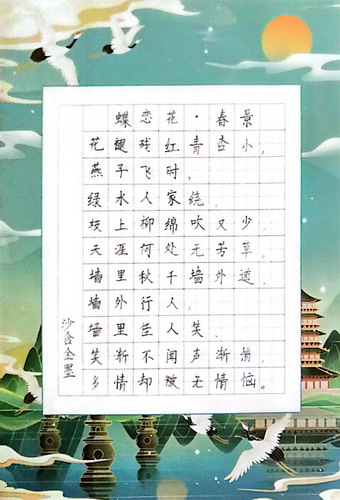 蝶恋花·春景
花褪残红青杏小,
燕子飞时,
绿水人家绕.
枝上柳绵吹又少.
天涯何处无芳草。
墙里秋千墙外道,
墙外行人,
墙里佳人笑.
笑渐不闻声渐悄.
多情却被无情恼。